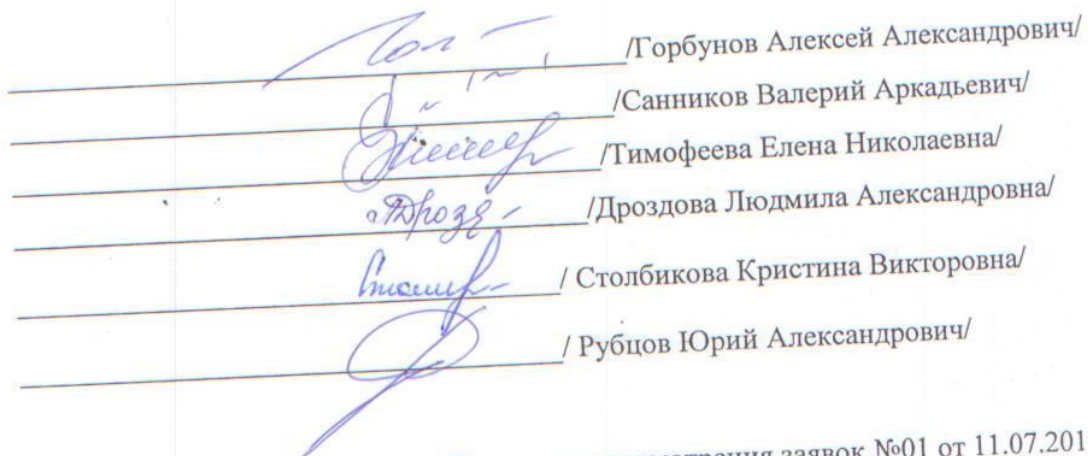 /Горбунов Алексей Александрович/
/Санников Валерий Аркадьевич/
/Тимофеева Елена Николаевна/
/Дроздова Людмила Александровна/
/ Столбикова Кристина Викторовна/
/ Рубцов Юрий Александрович/
заявок №01 от 11.07.201